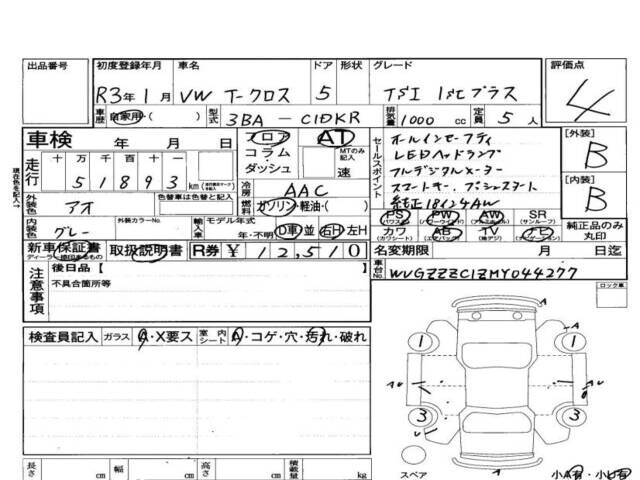 出品番号 初度登録年月 車名 ドア 形状 グレード 評価点
R3年1月 VW T-クロス 5 TSI 1stプラス 4
車歴 自家用・( ) 型式 3BA - C1DKR 排気量 1000 cc 定員 5 人
車検 年 月 日 フロア AT セールスポイント オールインセーフティ [外装] B
走行 十万千百十 51893 km コラム・ダッシュ MTのみ記入 速 LEDヘッドランプ
フルデジタルメーター [内装] B
冷房 AAC スマートキー、プッシュスタート
外装色 アオ 色替車は色替と記入 燃料 ガソリン・軽油・( ) 純正18インチAW
内装色 グレー 外装カラーNo. 輸入車記入 モデル年式 年・不明 D車 並 右H 左H
PS (パワステ) PW (パワーウインド) AW (アルミ) SR (サンルーフ) 純正品のみ丸印
カワ (カワシート) AB (エアバック) TV (地デジ) ナビ (ナビゲーション)
新車保証書 取扱説明書 R券 ¥ 12,510 名変期限 月 日迄
車台No. WVGZZZC1ZMY044277
注意事項 後日品【
不具合箇所等
ロック車
検査員記入 ガラス A・X要ス 室内シート A・コゲ・穴・汚れ・破れ
1 1
A A
3 3
スペア 小A有・小U有
長さ cm 幅 cm 高さ cm 積載量 kg
現在色を記入→